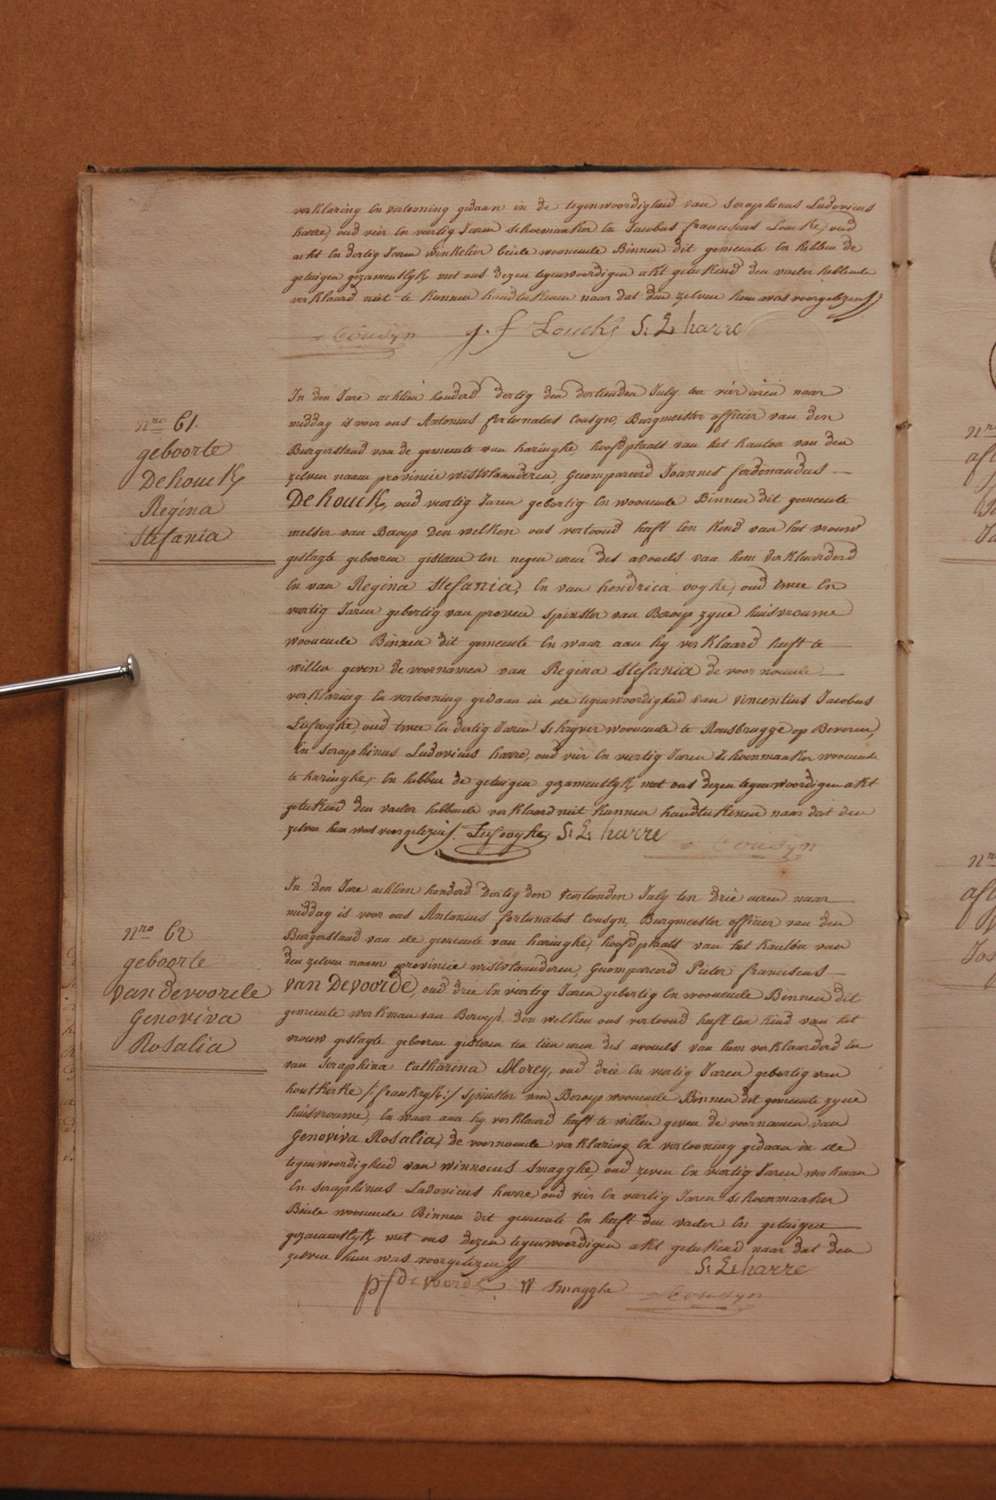 verklaring En vertooning gedaan in de tegenwoordigheid van Seraphinus Ludovicus
harre, oud vier En veertig Jaren schoenmaaker En Jacobus franciscus Loucke, oud
acht En dertig Jaren winkelier beide woonende Binnen dit gemeente En hebben de
getuigen gezamentlijk met ons dezen tegenwoordigen akt geteekend den vader hebbende
verklaard niet te kunnen handteekenen naar dat den zelven hem was voorgelezen
Cousyn J. f Loucke S: L harre
nro 61.
geboorte
Dehouck
Régina
Stefania
In den Jare achtien honderd dertig den dertienden July ten vier uren naar
middag is voor ons Antonius fortunatus Cousyn, Burgmeester officier van den
Burgerstand van de gemeente van haringhe hoofdplaats van het kanton van den
zelven naem provincie westvlaanderen, Gecompareerd Joannes ferdenandus
Dehouck, oud veertig Jaren gebortig En woonende Binnen dit gemeente
melder van Beroep den welken ons vertoond heeft Een Kind van het vrouw
geslagte geboren gisteren ten negen uren des avonds van hem verklaarderd
En van Regina Stefania, En van hendrica ooghe, oud twee En
veertig Jaren gebortig van proven spinster van Beroep zyne huisvrouwe
woonende Binnen dit gemeente En waar aan hy verklaard heeft te
willen geven de voornamen van Regina Stefania de voornoemde
verklaring En vertooning gedaan in de tegenwoordigheid van vincentius Jacobus
Lefooghe, oud twee En dertig Jaren Schryver woonende te Rousbrugge op Beveren,
En Seraphinus Ludovicus harre, oud vier En veertig Jaren Schoenmaaker woonende
te haringhe, En hebben de getuigen gezamentlyk met ons dezen tegenwoordigen akt
geteekend den vader hebbende verklaard niet kunnen handteekenen naar dat den
zelven hem was voorgelezen. Lefooghe S: L: harre
Cousyn
nro 62
geboorte
vandevoorde
Genoviva
Rosalia
In den Jare achtien honderd dertig den veertienden July ten drie uren naar
middag is voor ons Antonius fortunatus Cousyn, Burgmeester officier van den
Burgerstand van de gemeente van haringhe, hoofdplaats van het kanton van
den zelven naem provincie westvlaanderen, Gecompareerd Pieter franciscus
van Devoorde, oud drie En veertig Jaren gebortig En woonende Binnen dit
gemeente werkman van Beroep, den welken ons vertoond heeft Een Kind van het
vrouw geslagte geboren gisteren ten tien uren des avonds van hem verklaarderd En
van Seraphina Catharina Morey, oud drie En veertig Jaren gebortig van
houtkerke /: frankryk :/ Spinster van Beroep woonende Binnen dit gemeente zyne
huisvrouwe, En waar aan hy verklaard heeft te willen geven de voornamen van
Genoviva Rosalia, de voornoemde verklaring En vertooning gedaan in de
tegenwoordigheid van winnocus Smagghe, oud zeven En veertig Jaren werkman
En Seraphinus Ludovicus harre oud vier En veertig Jaren Schoenmaaker
Beide woonende Binnen dit gemeente En heeft den vader En getuigen
gezamentlyk met ons dezen tegenwoordigen akt geteekend naar dat den
zelven hun was voorgelezen
S: L: harre
pf de voorde W Smagghe Cousyn